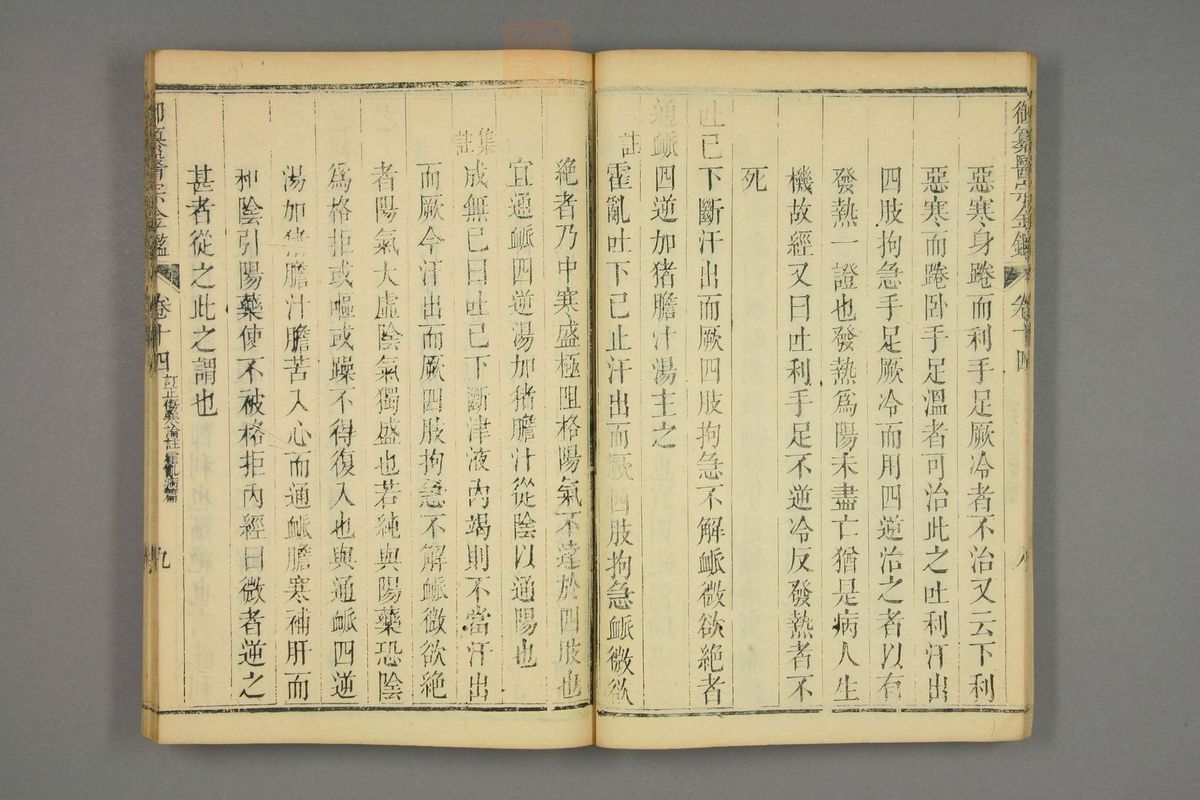 御纂醫宗金鑑 卷十四 八
惡寒身踡而利手足厥冷者不治又云下利
惡寒而踡卧手足溫者可治此之吐利汗出
四肢拘急手足厥冷而用四逆治之者以有
發熱一證也發熱爲陽未盡亡猶是病人生
機故經又曰吐利手足不逆冷反發熱者不
死
吐已下斷汗出而厥四肢拘急不解脈微欲絶者
通脈四逆加猪膽汁湯主之
註霍亂吐下已止汗出而厥四肢拘急脈微欲
絶者乃中寒盛極阻格陽氣不達於四肢也
宜通脈四逆湯加猪膽汁從陰以通陽也
集註成無已曰吐已下斷津液內竭則不當汗出
而厥今汗出而厥四肢拘急不解脈微欲絶
者陽氣大虛陰氣獨盛也若純與陽藥恐陰
爲格拒或嘔或躁不得復入也與通脈四逆
湯加猪膽汁膽苦入心而通脈膽寒補肝而
和陰引陽藥使不被格拒內經曰微者逆之
甚者從之此之謂也
御纂醫宗金鑑 卷十四 訂正傷寒論註霍亂病篇 九